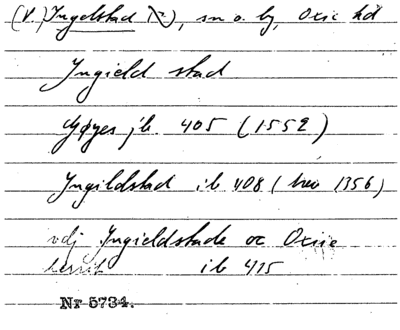 (V.) Ingelstad, sn o. by, Oxie hd
Ingield stad
Gøyes jb. 405 (1552)
Ingildstad ib 408 (brev 1356)
vdj Ingieldstade oc Oxie
herrit ib 415
Nr 5734.